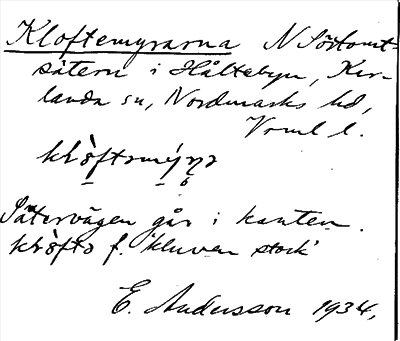 Kloftemyrarna N Sörtomt-
sätern i Håltebyn, Kar-
landa sn, Nordmarks hd,
Vrml l.
klòftəmýṛṇə
Sätervägen går i kanten.
klòftə f. 'kluven stock'
E. Andersson 1934,